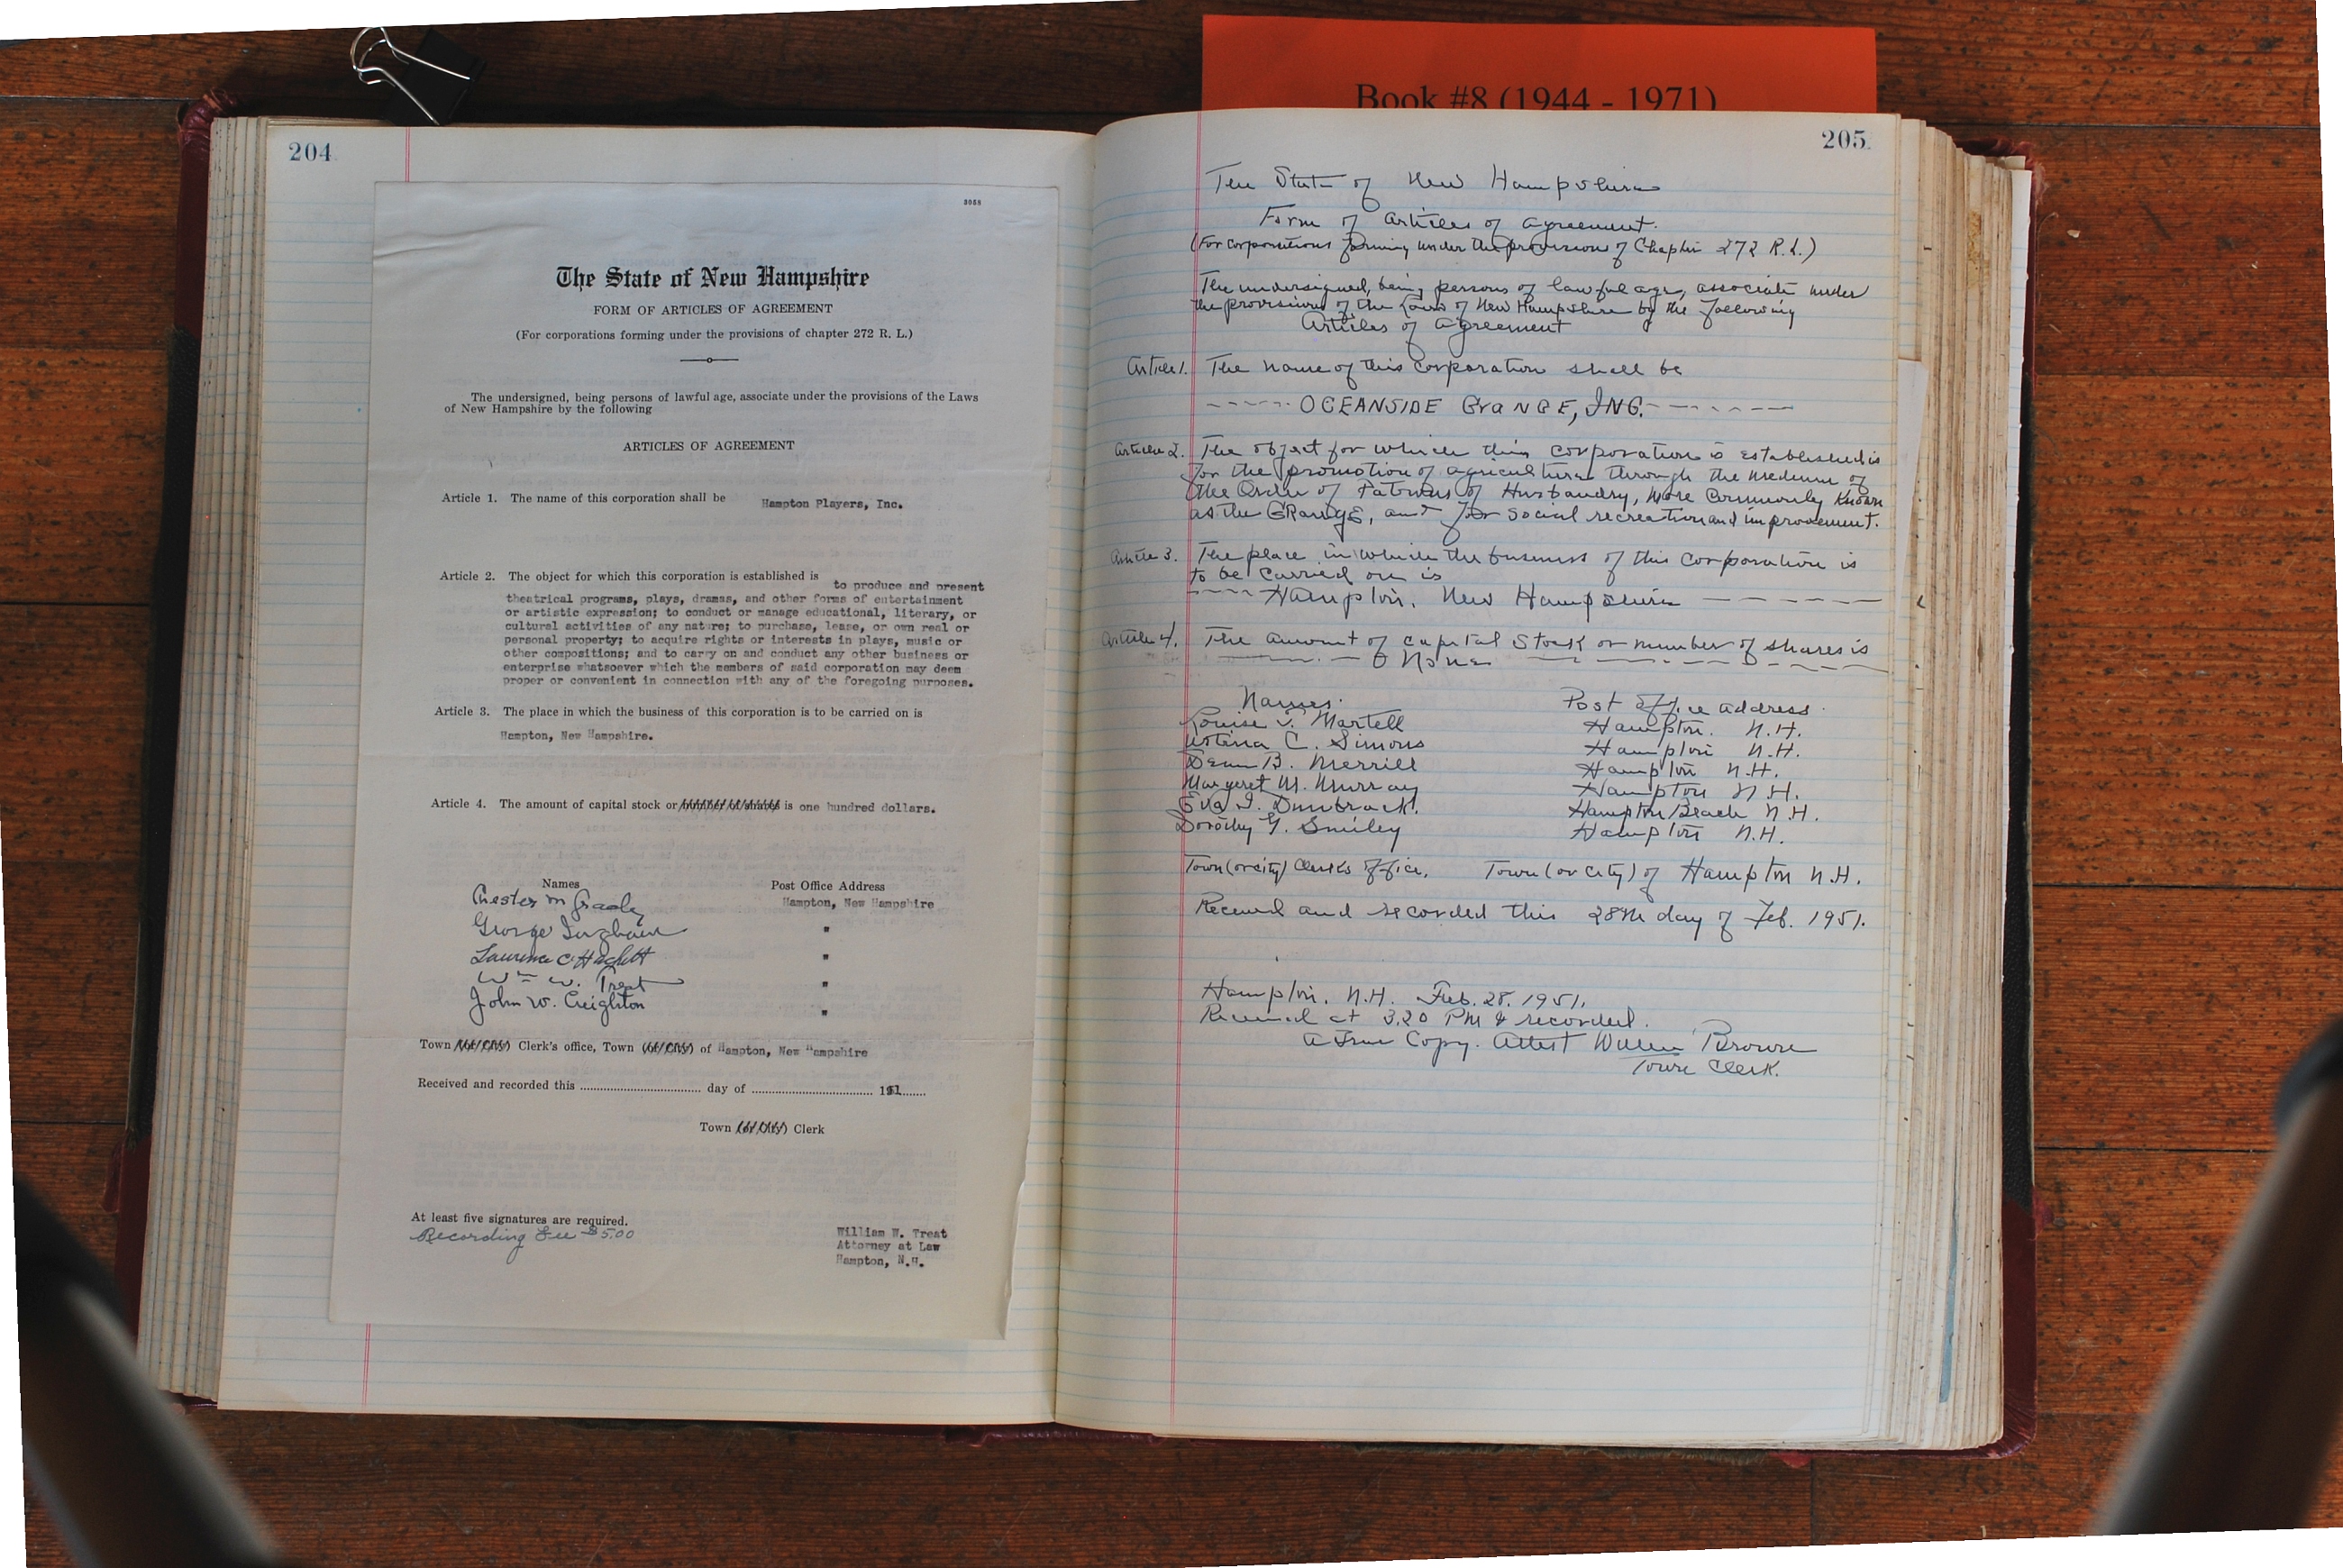 Book #8 (1944 - 1971)
204
3058
The State of New Hampshire
FORM OF ARTICLES OF AGREEMENT
(For corporations forming under the provisions of chapter 272 R. L.)
The undersigned, being persons of lawful age, associate under the provisions of the Laws
of New Hampshire by the following
ARTICLES OF AGREEMENT
Article 1. The name of this corporation shall be Hampton Players, Inc.
Article 2. The object for which this corporation is established is to produce and present
theatrical programs, plays, dramas, and other forms of entertainment
or artistic expression; to conduct or manage educational, literary, or
cultural activities of any nature; to purchase, lease, or own real or
personal property; to acquire rights or interests in plays, music or
other compositions; and to carry on and conduct any other business or
enterprise whatsoever which the members of said corporation may deem
proper or convenient in connection with any of the foregoing purposes.
Article 3. The place in which the business of this corporation is to be carried on is
Hampton, New Hampshire.
Article 4. The amount of capital stock or number of shares is one hundred dollars.
Names Post Office Address
Chester M Hampton, New Hampshire
George "
Laurence C Hackett "
Wm W. Treat "
John W. Creighton "
Town (or City) Clerk's office, Town (or City) of Hampton, New Hampshire
Received and recorded this ........ day of ........ 1951
Town (or City) Clerk
At least five signatures are required.
Recording Fee $5.00
William W. Treat
Attorney at Law
Hampton, N.H.
205.
The State of New Hampshire
Form of Articles of Agreement.
(For corporations forming under the provision of Chapter 272 R.L.)
The undersigned, being persons of lawful age, associate under
the provisions of the Laws of New Hampshire by the following
Articles of Agreement
Article 1. The name of this corporation shall be
----- OCEANSIDE GraNGE, INC. -----
Article 2. The object for which this corporation is established is
for the promotion of agriculture through the medium of
the Order of Patrons of Husbandry, more commonly known
as the GRangE, and for social recreation and improvement.
Article 3. The place in which the business of this corporation is
to be carried on is
---- Hampton, New Hampshire -----
Article 4. The amount of capital stock or number of shares is
---- None ----
Names. Post office address.
Louise T. Martell Hampton. N.H.
C. Simons Hampton N.H.
Dean B. Merrill Hampton N.H.
Margaret M. Murray Hampton N.H.
Eva I. Dunbrack. Hampton Beach N.H.
Dorothy G. Smiley Hampton N.H.
Town (or city) Clerks office, Town (or city) of Hampton N.H.
Received and recorded this 28th day of Feb. 1951.
Hampton, N.H. Feb. 28. 1951.
Received at 3.20 PM & recorded.
A True Copy. Attest William Brown
Town Clerk.